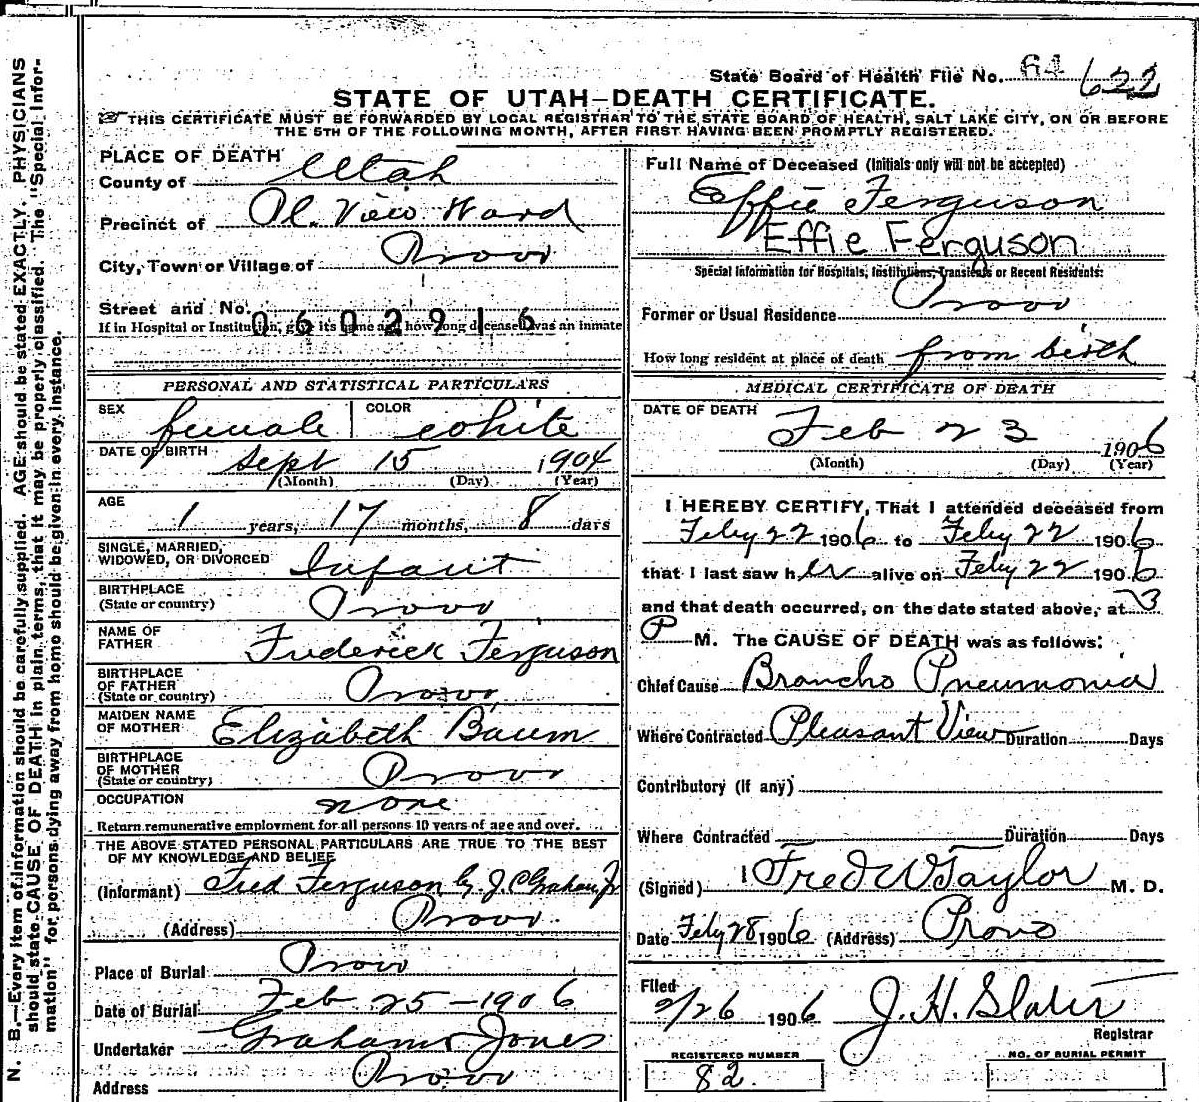 State Board of Health File No. 64 622
STATE OF UTAH—DEATH CERTIFICATE.
THIS CERTIFICATE MUST BE FORWARDED BY LOCAL REGISTRAR TO THE STATE BOARD OF HEALTH, SALT LAKE CITY, ON OR BEFORE
THE 5TH OF THE FOLLOWING MONTH, AFTER FIRST HAVING BEEN PROMPTLY REGISTERED.
PLACE OF DEATH
County of Utah
Precinct of Pl. View Ward
City, Town or Village of Provo
Street and No.
0602916
If in Hospital or Institution, give its name and how long deceased was an inmate
PERSONAL AND STATISTICAL PARTICULARS
SEX female COLOR white
DATE OF BIRTH Sept 15 1904
(Month) (Day) (Year)
AGE 1 years, 17 months, 8 days
SINGLE, MARRIED,
WIDOWED, OR DIVORCED Infant
BIRTHPLACE
(State or country) Provo
NAME OF
FATHER Frederick Ferguson
BIRTHPLACE
OF FATHER
(State or country) Provo
MAIDEN NAME
OF MOTHER Elizabeth Baum
BIRTHPLACE
OF MOTHER
(State or country) Provo
OCCUPATION none
Return remunerative employment for all persons 10 years of age and over.
THE ABOVE STATED PERSONAL PARTICULARS ARE TRUE TO THE BEST
OF MY KNOWLEDGE AND BELIEF
(Informant) Fred Ferguson by J C Graham Jr
(Address) Provo.
Place of Burial Provo
Date of Burial Feb 25—1906
Undertaker Graham Jones
Address Provo
Full Name of Deceased (Initials only will not be accepted)
Effie Ferguson
Effie Ferguson
Special Information for Hospitals, Institutions, Transients or Recent Residents:
Former or Usual Residence Provo
How long resident at place of death from birth
MEDICAL CERTIFICATE OF DEATH
DATE OF DEATH Feb 23 1906
(Month) (Day) (Year)
I HEREBY CERTIFY, That I attended deceased from
Feby 22 1906 to Feby 22 1906
that I last saw her alive on Feby 22 1906
and that death occurred, on the date stated above, at 3
P M. The CAUSE OF DEATH was as follows:
Chief Cause Broncho Pneumonia
Where Contracted Pleasant View Duration Days
Contributory (If any)
Where Contracted Duration Days
(Signed) Fred W Taylor M. D.
Date Feby 28 1906 (Address) Provo
Filed
2/26 1906 J. H. Slater
Registrar
REGISTERED NUMBER
82.
NO. OF BURIAL PERMIT
N. B.—Every item of information should be carefully supplied. AGE should be stated EXACTLY. PHYSICIANS
should state CAUSE OF DEATH in plain terms, that it may be properly classified. The "Special Infor-
mation" for persons dying away from home should be given in every instance.